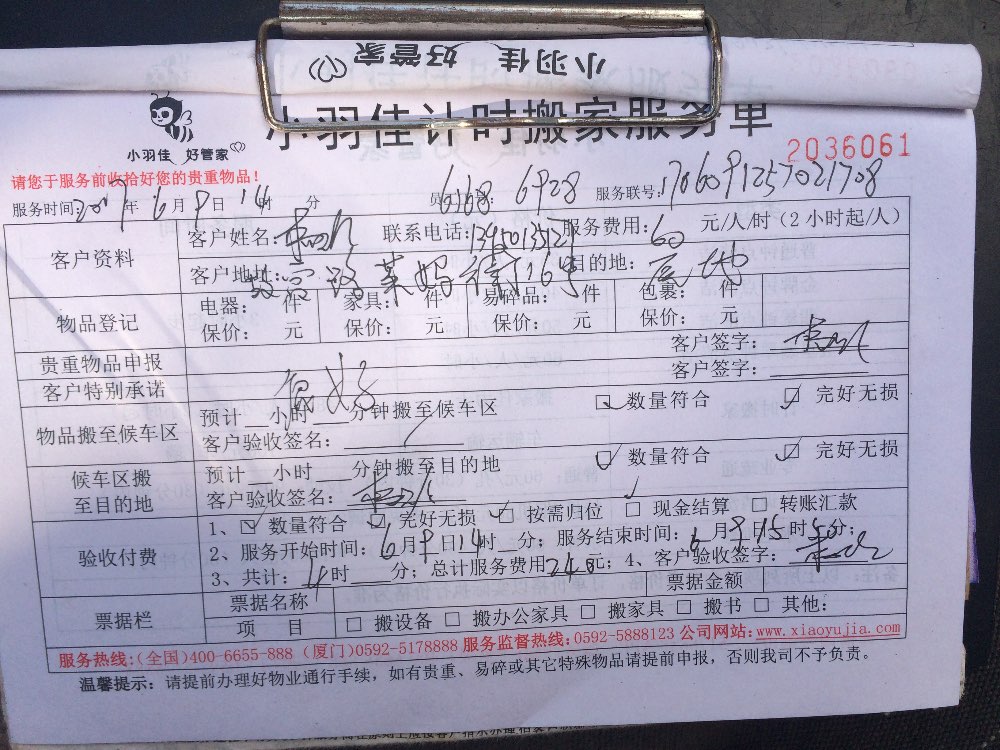 小羽佳 好管家
小羽佳计时搬家服务单
小羽佳 好管家
2036061
请您于服务前收拾好您的贵重物品!
服务时间: 2017年6月9日14时 分 员 6168 6928 服务联号: 1706091257021708
客户资料 客户姓名: 联系电话: 服务费用: 60 元/人/时(2小时起/人)
客户地址: 目的地:
物品登记 电器: 件 家具: 件 易碎品: 件 包裹: 件
保价: 元 保价: 元 保价: 元 保价: 元
贵重物品申报 客户签字:
客户特别承诺 客户签字:
物品搬至候车区 预计 小时 分钟搬至候车区 数量符合 完好无损
客户验收签名:
候车区搬至目的地 预计 小时 分钟搬至目的地 数量符合 完好无损
客户验收签名:
验收付费 1、 数量符合 完好无损 按需归位 现金结算 转账汇款
2、服务开始时间: 6月9日14时 分; 服务结束时间: 6月9日15时 分;
3、共计: 4时 分; 总计服务费用240元; 4、客户验收签字:
票据栏 票据名称 票据金额
项 目 □ 搬设备 □ 搬办公家具 □ 搬家具 □ 搬书 □ 其他:
服务热线:(全国)400-6655-888 (厦门)0592-5178888 服务监督热线:0592-5888123 公司网站:www.xiaoyujia.com
温馨提示: 请提前办理好物业通行手续, 如有贵重、易碎或其它特殊物品请提前申报, 否则我司不予负责。